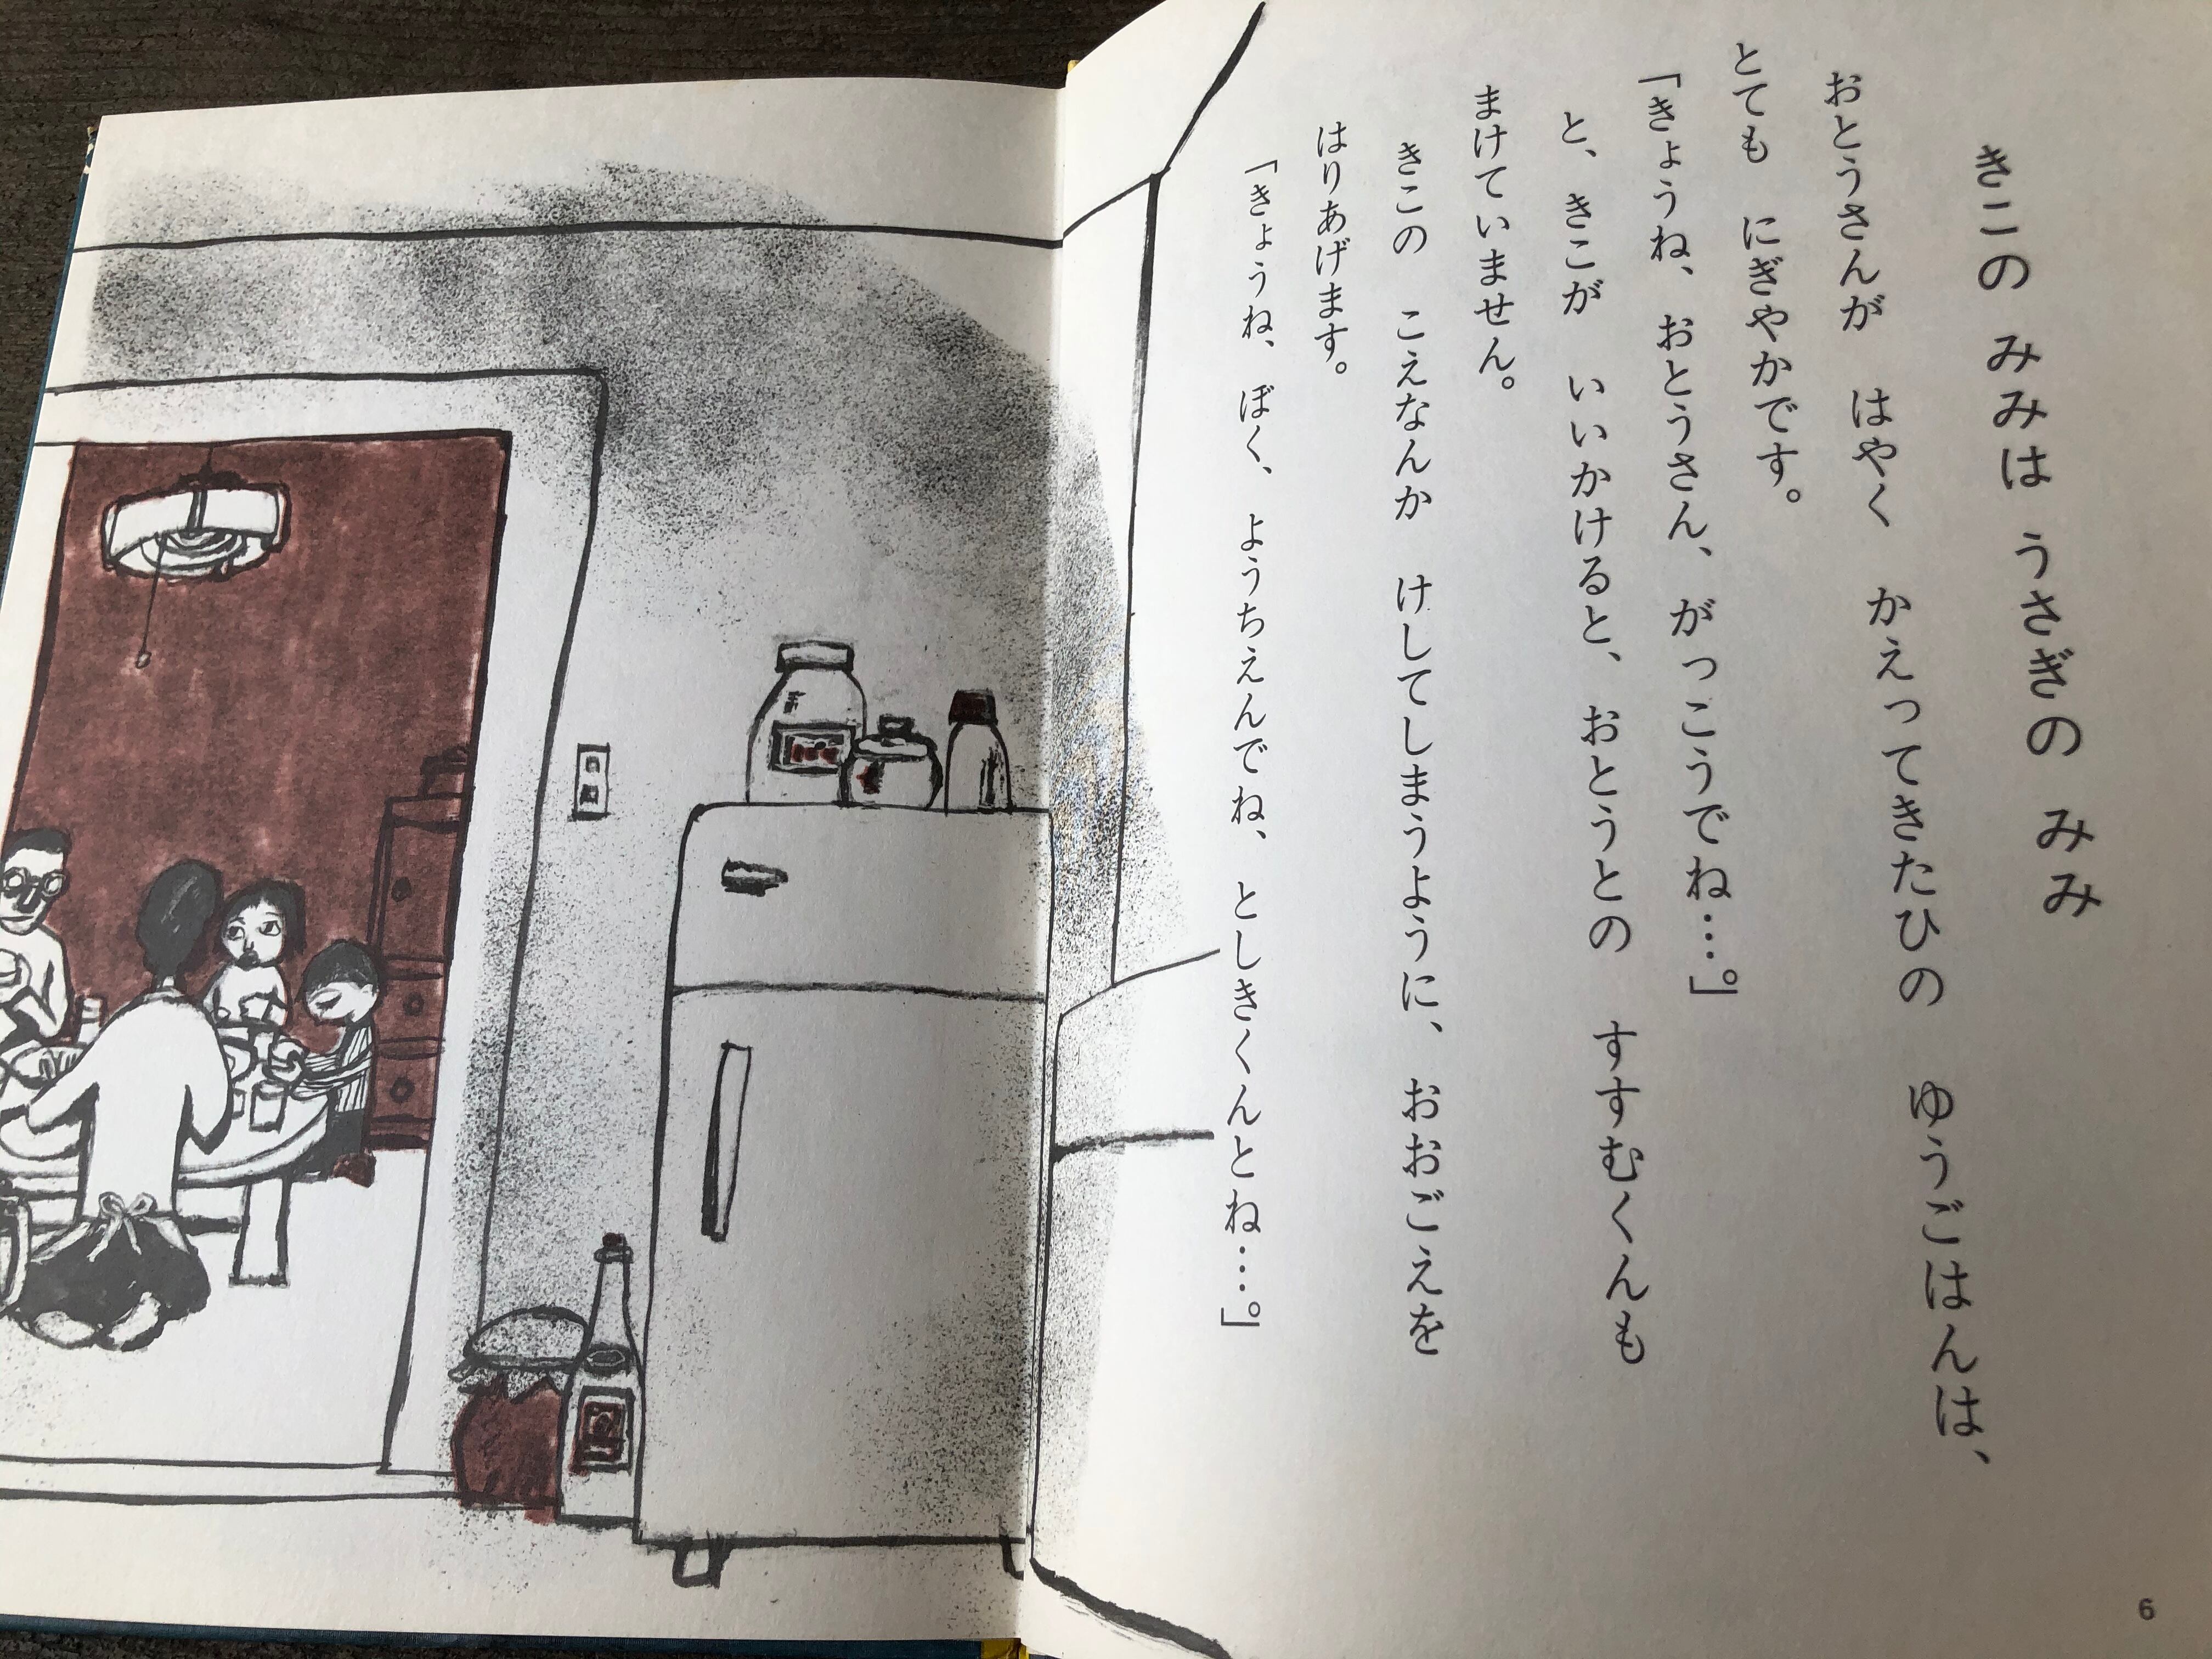 きこの みみは うさぎの みみ
おとうさんが はやく かえってきたひの ゆうごはんは、
とても にぎやかです。
「きょうね、おとうさん、がっこうでね……。」
と、きこが いいかけると、おとうとの すすむくんも
まけていません。
きこの こえなんか けしてしまうように、おおごえを
はりあげます。
「きょうね、ぼく、ようちえんでね、としきくんとね……。」
6